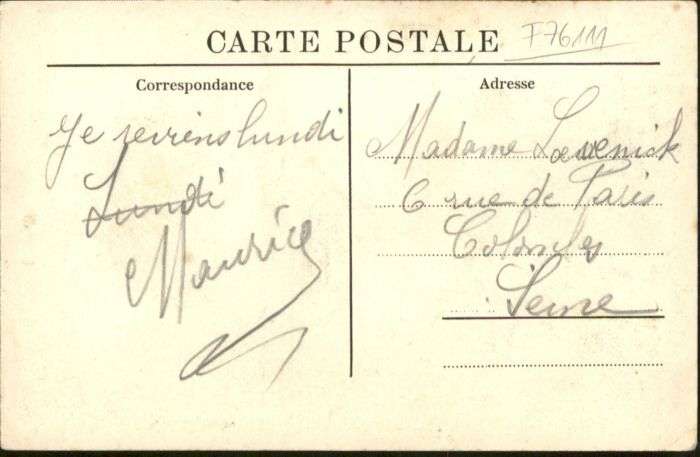 CARTE POSTALE
F76111
Correspondance
Adresse
Je reviens lundi
Lundi
Maurice
Madame Lœwenick
6 rue de Paris
Colombes
Seine